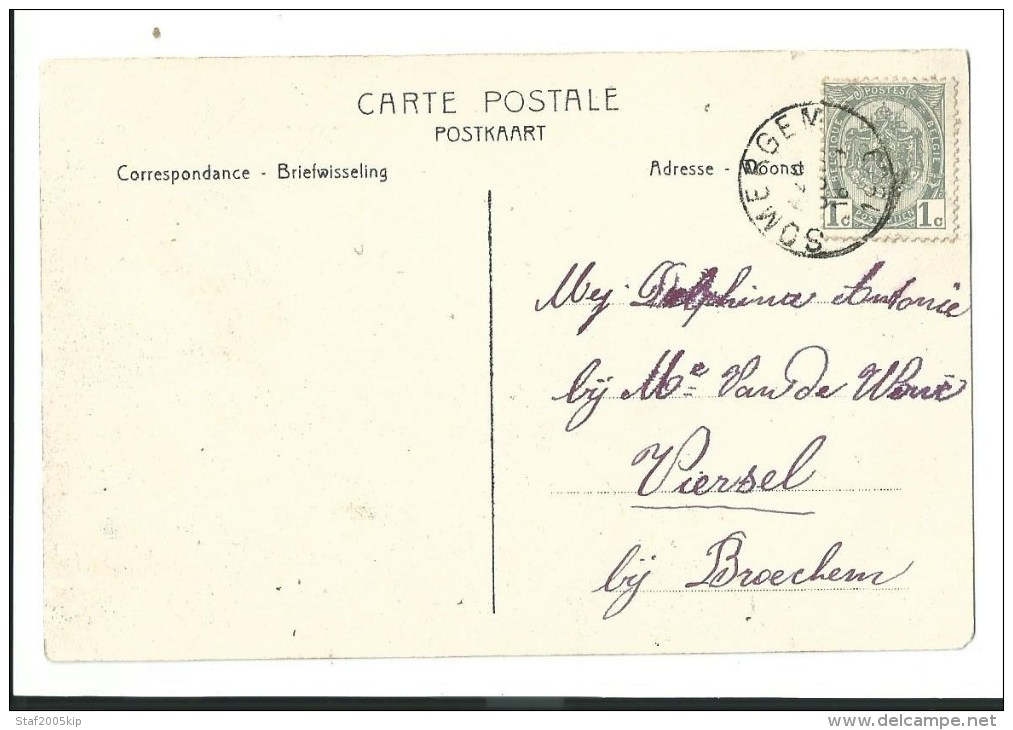 CARTE POSTALE
POSTKAART
Correspondance - Briefwisseling
Adresse - Woonst
POSTES
BELGIQUE
BELGIE
POSTERIJEN
1c 1c
SOMERGEM
Mej. Delphina Antonie
bij Me Van de
Viersel
bij Broechem
Staf2005kip
delcampe.net